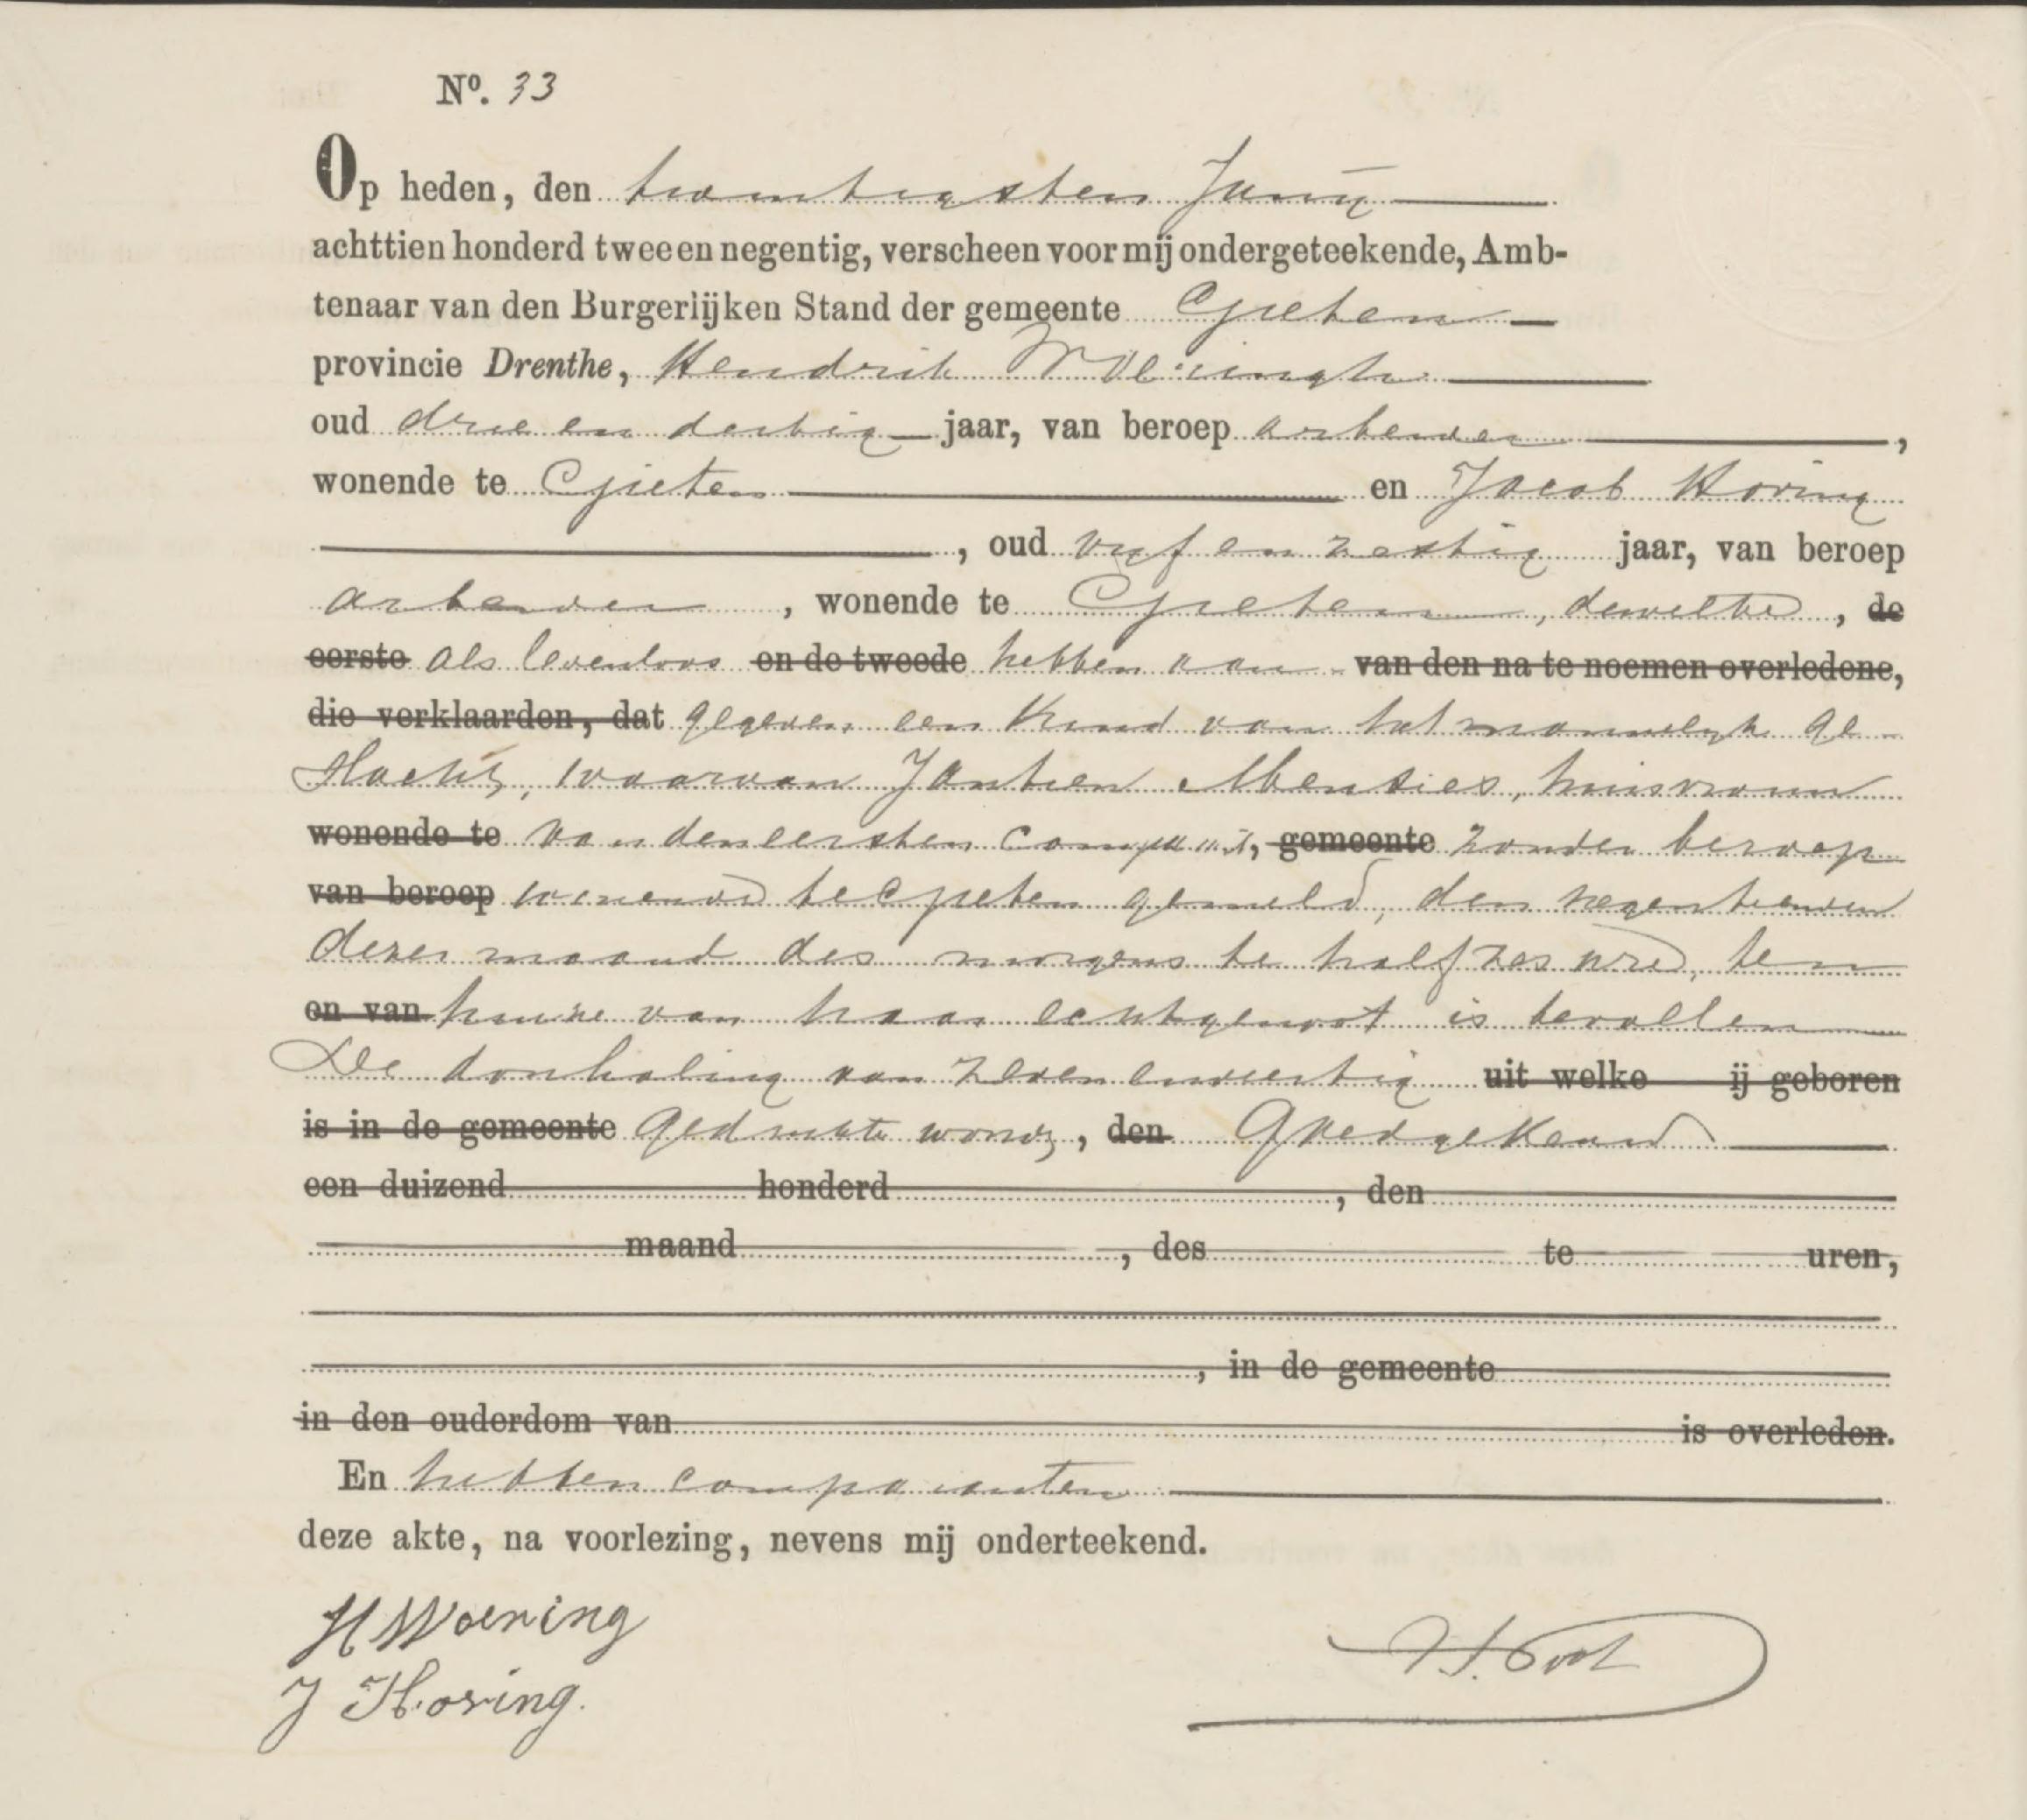 Nº. 33
Op heden, den twintigsten Junij
achttien honderd twee en negentig, verscheen voor mij ondergeteekende, Amb-
tenaar van den Burgerlijken Stand der gemeente Gieten
provincie Drenthe, Hendrik
oud drie en dertig jaar, van beroep arbeider,
wonende te Gieten en Jacob Hoving
, oud vijf en zestig jaar, van beroep
arbeider, wonende te Gieten, dewelke, de
eerste als levenloos en de tweede hebben aan van den na te noemen overledene,
die verklaarden, dat gegeven een kind van het mannelijk ge-
slacht, waarvan Jantien Abenties, huisvrouw
wonende te van den eersten comparant, gemeente zonder beroep
van beroep wonende te Gieten gemeld, den negentienden
dezer maand des morgens te half zes ure, ten
en van huize van haar echtgenoot is bevallen
De doorhaling van zeven en veertig uit welke ij geboren
is in de gemeente gedrukte woorden, den Goedgekeurd
een duizend honderd , den
maand , des te uren,
, in de gemeente
in den ouderdom van is overleden.
En hebben comparanten
deze akte, na voorlezing, nevens mij onderteekend.
H Woering
J Hoving.